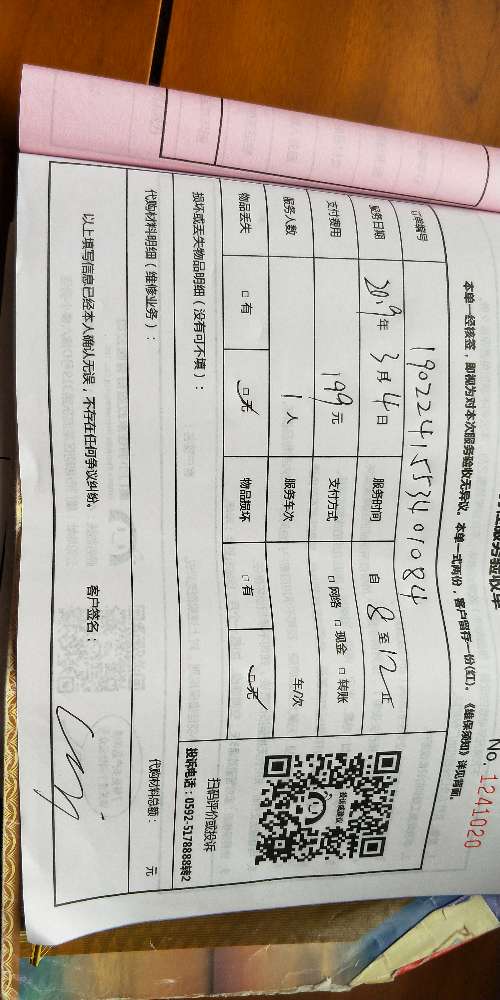 服务验收单
No. 1241020
本单一经核签，即视为对本次服务验收无异议。本单一式两份，客户留存一份(红)。《维保须知》详见背面。
订单编号 1902241553401084
服务日期 2019年 3月 4日 服务时间 自 8 至 12 止
支付费用 199元 支付方式 □ 网络 □ 现金 □ 转账
服务人数 1 人 服务车次 车/次
物品丢失 □ 有 □ 无 物品损坏 □ 有 □ 无
损坏或丢失物品明细（没有可不填）：
我诉或建议
扫码评价或投诉
投诉电话：0592-5178888转2
代购材料明细（维修业务）： 代购材料总额： 元
以上填写信息已经本人确认无误，不存在任何争议纠纷。 客户签名：